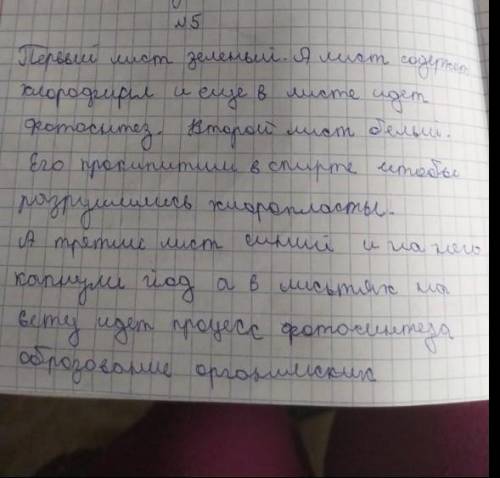 №5
Первый лист зеленый. А лист содержет
хлорофирл и еще в листе идет
фотоситез. Второй лист белый.
Его прокипитили в спирте чтобы
разрушились хлоропласты.
А третие лист синий и на него
капнули йод а в листьях на
вету идет процесс фотосинтеза
оброзование органических